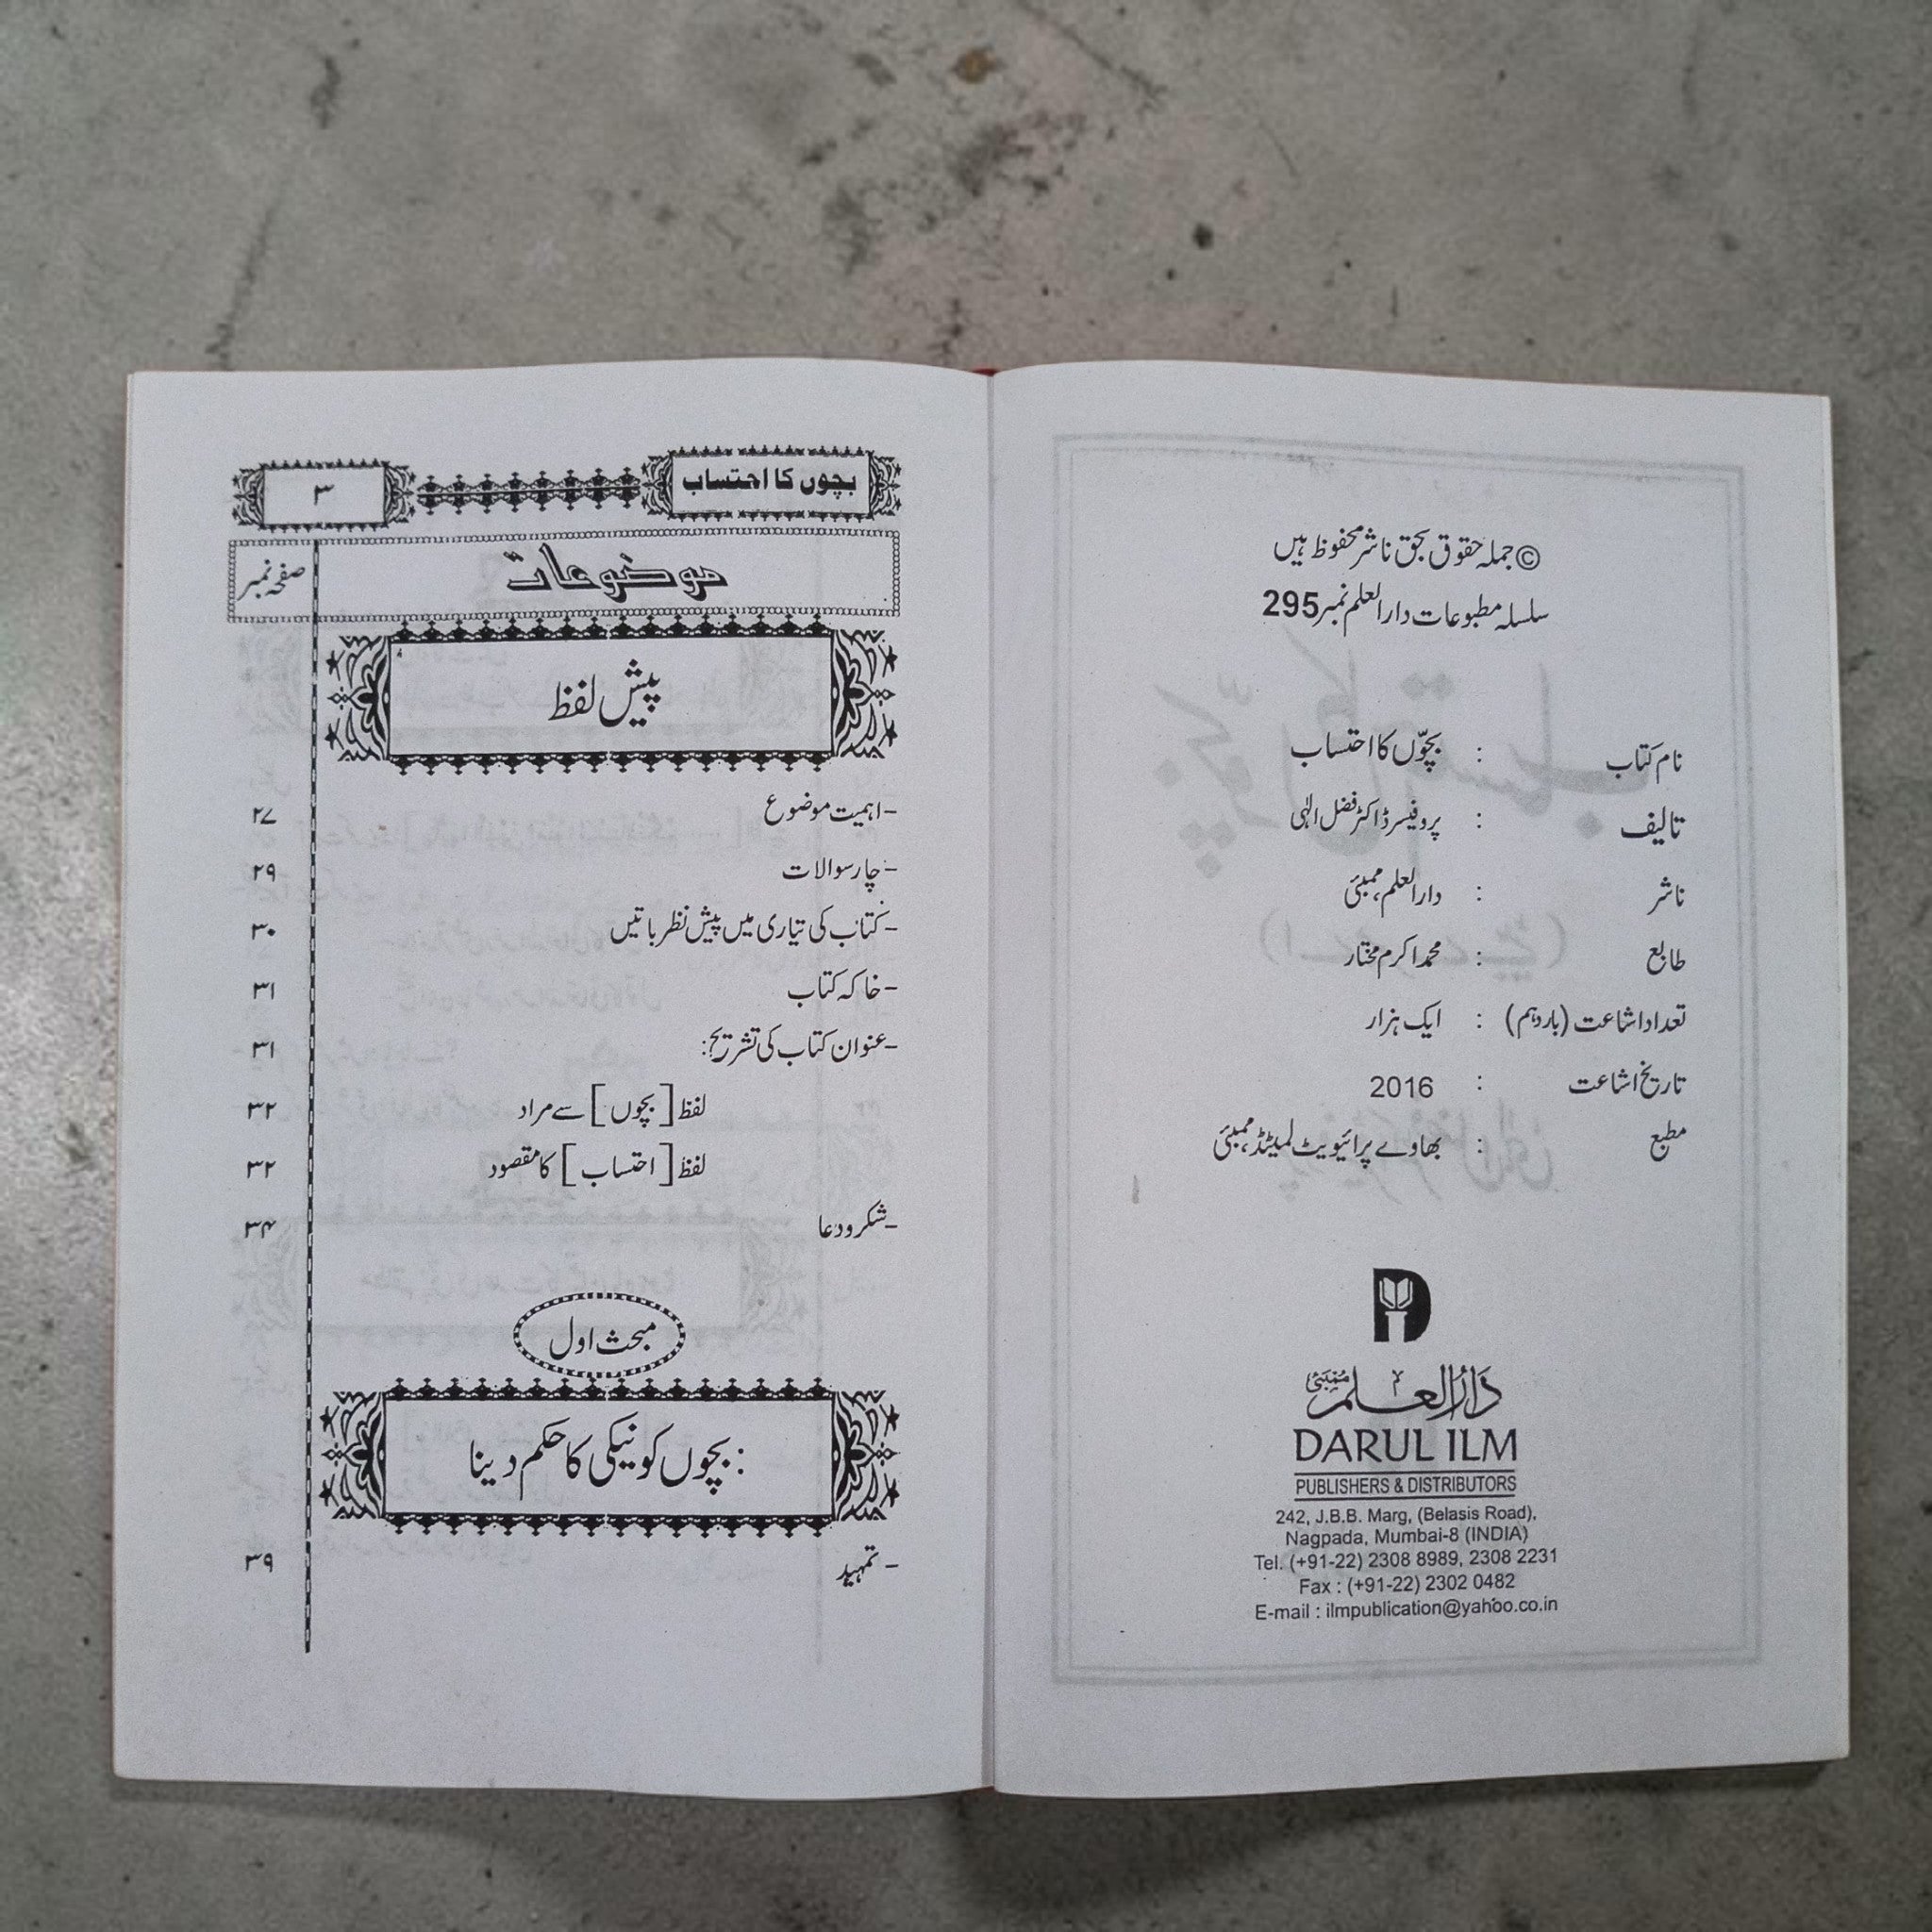 © جملہ حقوق بحق ناشر محفوظ ہیں
سلسلہ مطبوعات دارالعلم نمبر 295
نام کتاب : بچّوں کا احتساب
تالیف : پروفیسر ڈاکٹر فضل الٰہی
ناشر : دارالعلم، ممبئی
طابع : محمد اکرم مختار
تعداد اشاعت (بار دہم) : ایک ہزار
تاریخ اشاعت : 2016
مطبع : بھاوے پرائیویٹ لمیٹڈ، ممبئی
دَارُالعِلم ممبئی
DARUL ILM
PUBLISHERS & DISTRIBUTORS
242, J.B.B. Marg, (Belasis Road),
Nagpada, Mumbai-8 (INDIA)
Tel. (+91-22) 2308 8989, 2308 2231
Fax : (+91-22) 2302 0482
E-mail : ilmpublication@yahoo.co.in
بچوں کا احتساب ۳
موضوعات صفحہ نمبر
پیش لفظ
- اہمیت موضوع ۲۷
- چار سوالات ۲۹
- کتاب کی تیاری میں پیش نظر باتیں ۳۰
- خاکہ کتاب ۳۱
- عنوان کتاب کی تشریح: ۳۱
لفظ [بچوں] سے مراد ۳۲
لفظ [احتساب] کا مقصود ۳۲
- شکر و دعا ۳۴
مبحث اول
: بچوں کو نیکی کا حکم دینا
- تمہید ۳۹